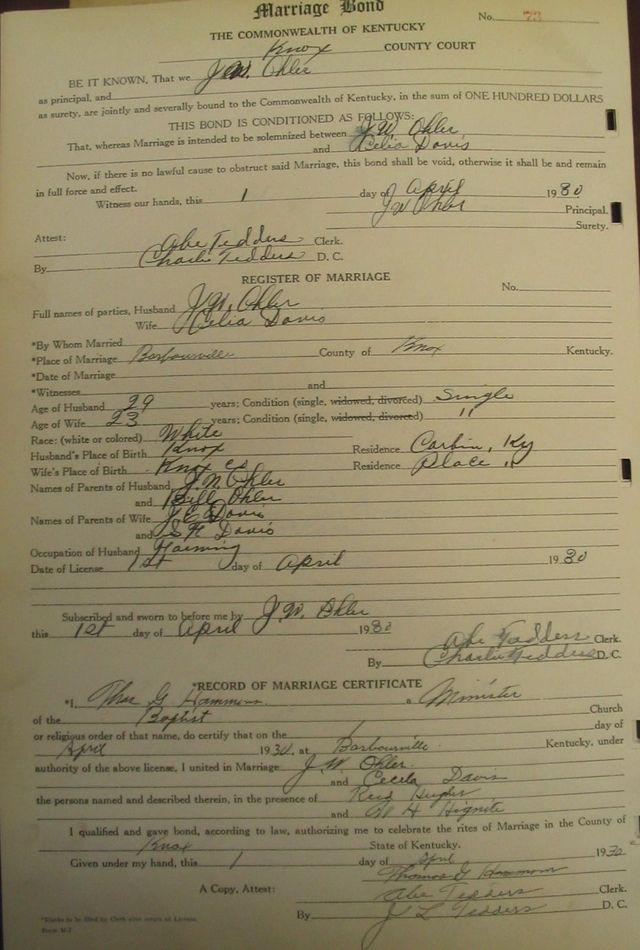 Marriage Bond
No. 73
THE COMMONWEALTH OF KENTUCKY
Knox COUNTY COURT
BE IT KNOWN, That we J.W. Ohler
as principal, and
as surety, are jointly and severally bound to the Commonwealth of Kentucky, in the sum of ONE HUNDRED DOLLARS
THIS BOND IS CONDITIONED AS FOLLOWS:
That, whereas Marriage is intended to be solemnized between J.W. Ohler
and Celia Davis
Now, if there is no lawful cause to obstruct said Marriage, this bond shall be void, otherwise it shall be and remain
in full force and effect.
Witness our hands, this 1 day of April 1930
J W Ohler Principal.
Surety.
Attest: Abe Tedders Clerk.
By Charlie Tedders D. C.
REGISTER OF MARRIAGE
No.
Full names of parties, Husband J.W. Ohler
Wife Celia Davis
*By Whom Married
*Place of Marriage Barbourville County of Knox Kentucky.
*Date of Marriage
*Witnesses and
Age of Husband 29 years; Condition (single, widowed, divorced) Single
Age of Wife 23 years; Condition (single, widowed, divorced) "
Race: (white or colored) White
Husband's Place of Birth Knox Residence Corbin, Ky
Wife's Place of Birth Knox Co Residence Place "
Names of Parents of Husband J. N. Ohler
and Bill Ohler
Names of Parents of Wife J. C. Davis
and Davis
Occupation of Husband Farming
Date of License 1st day of April 1930
Subscribed and sworn to before me by J.W. Ohler
this 1st day of April 1930
Abe Tedders Clerk.
By Charlie Tedders D.C.
*RECORD OF MARRIAGE CERTIFICATE
*I, Thos G Hammons a Minister
of the Baptist Church
or religious order of that name, do certify that on the 1 day of
April 1930, at Barbourville Kentucky, under
authority of the above license, I united in Marriage J.W. Ohler
and Cecela Davis
the persons named and described therein, in the presence of Reed
and Hignite
I qualified and gave bond, according to law, authorizing me to celebrate the rites of Marriage in the County of
Knox State of Kentucky.
Given under my hand, this 1 day of April 1930
Thomas G Hammons
A Copy, Attest: Abe Tedders Clerk.
By J L Tedders D. C.
*Blanks to be filled by Clerk after return of License.